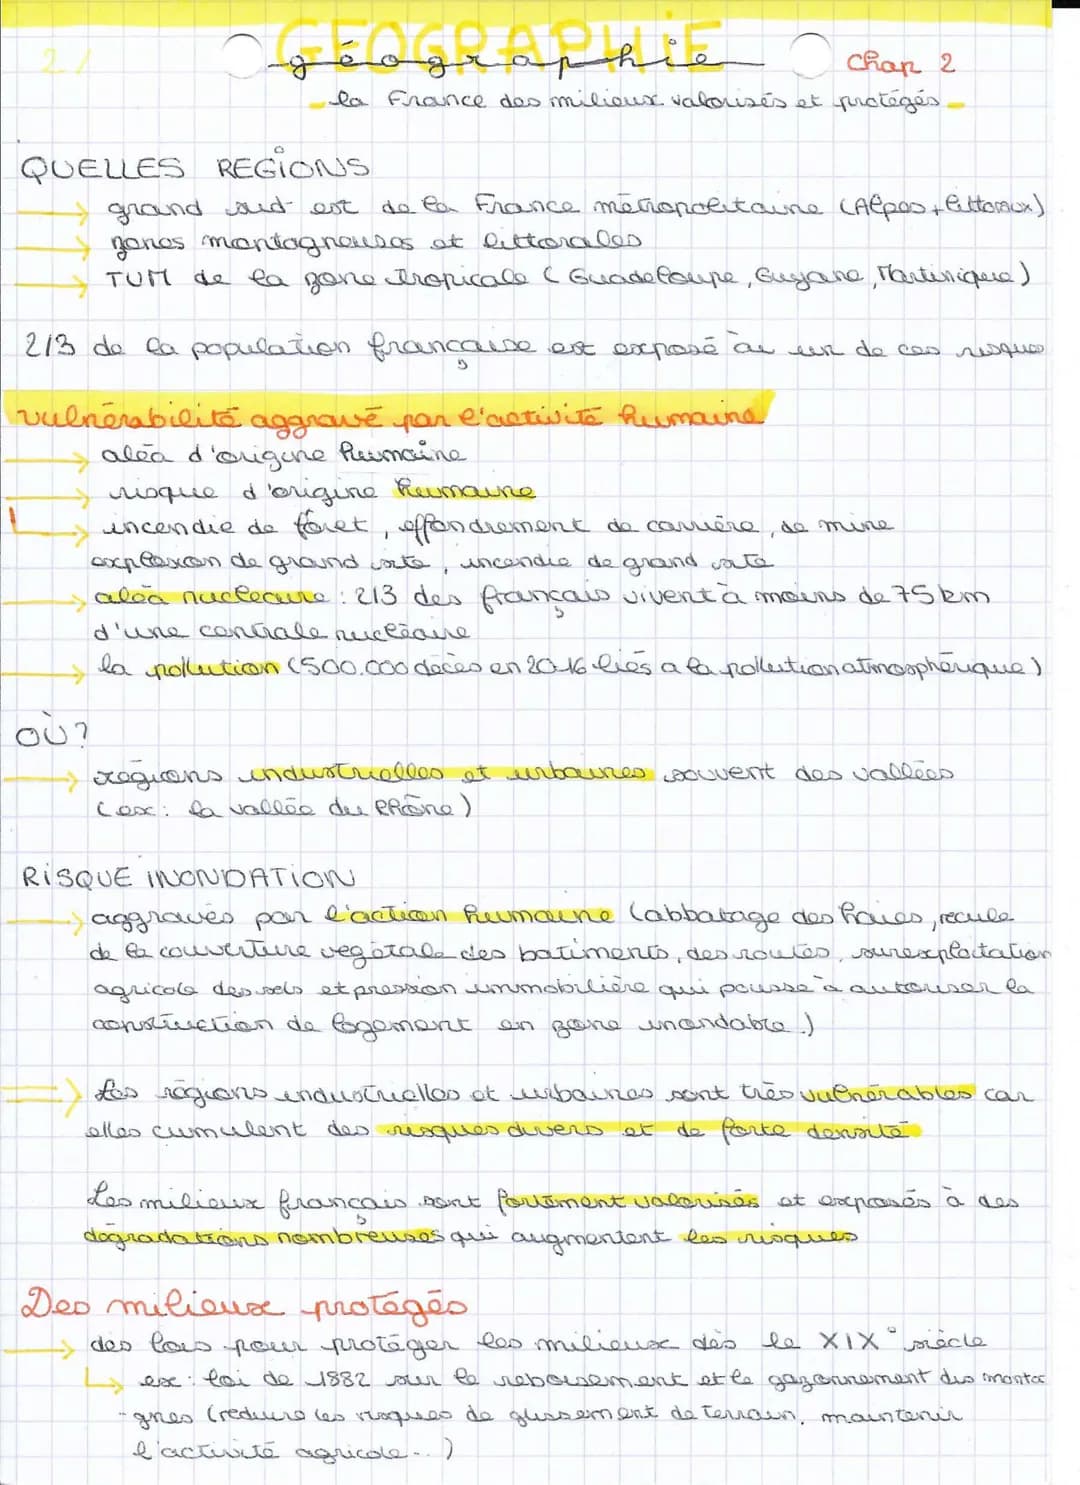 GEOGRAPHIE
2/ géographie Chap 2
la France des milieux valorisés et protégés
QUELLES REGIONS
→ grand sud est de la France métropolitaine (Alpes + littoraux)
→ zones montagneuses et littorales
→ TUM de la zone tropicale (Guadeloupe, Guyane, Martinique)
2/3 de la population française est exposé à un de ces risques
vulnérabilité aggravé par l'activité humaine
→ aléa d'origine humaine
→ risque d'origine humaine
→ incendie de fôret, effondrement de carrière, de mine
explosion de grand site, incendie de grand site
→ aléa nucléaire : 2/3 des français vivent à moins de 75km
d'une centrale nucléaire
→ la pollution (500.000 décès en 2016 liés a la pollution atmosphérique)
OÙ?
→ régions industrielles et urbaines souvent des vallées
(ex: la vallée du Rhône)
RISQUE INONDATION
→ aggravés par l'action humaine (abbatage des haies, recule
de la couverture vegétale des batiments, des routes, surexploitation
agricole des sols et pression immobilière qui pousse à autoriser la
construction de logement en zone inondable.)
⇒ Les régions industrielles et urbaines sont très vulnérables car
elles cumulent des risques divers et de forte densité
Les milieux français sont fortement valorisés et exposés à des
dégradations nombreuses qui augmentent les risques
Des milieux protégés
→ des lois pour protéger les milieux dès le XIX° siècle
↳ ex: loi de 1882 sur le reboisement et le gazonnement des monta
-gnes (réduire les risques de glissement de terrain, maintenir
l'activité agricole...)